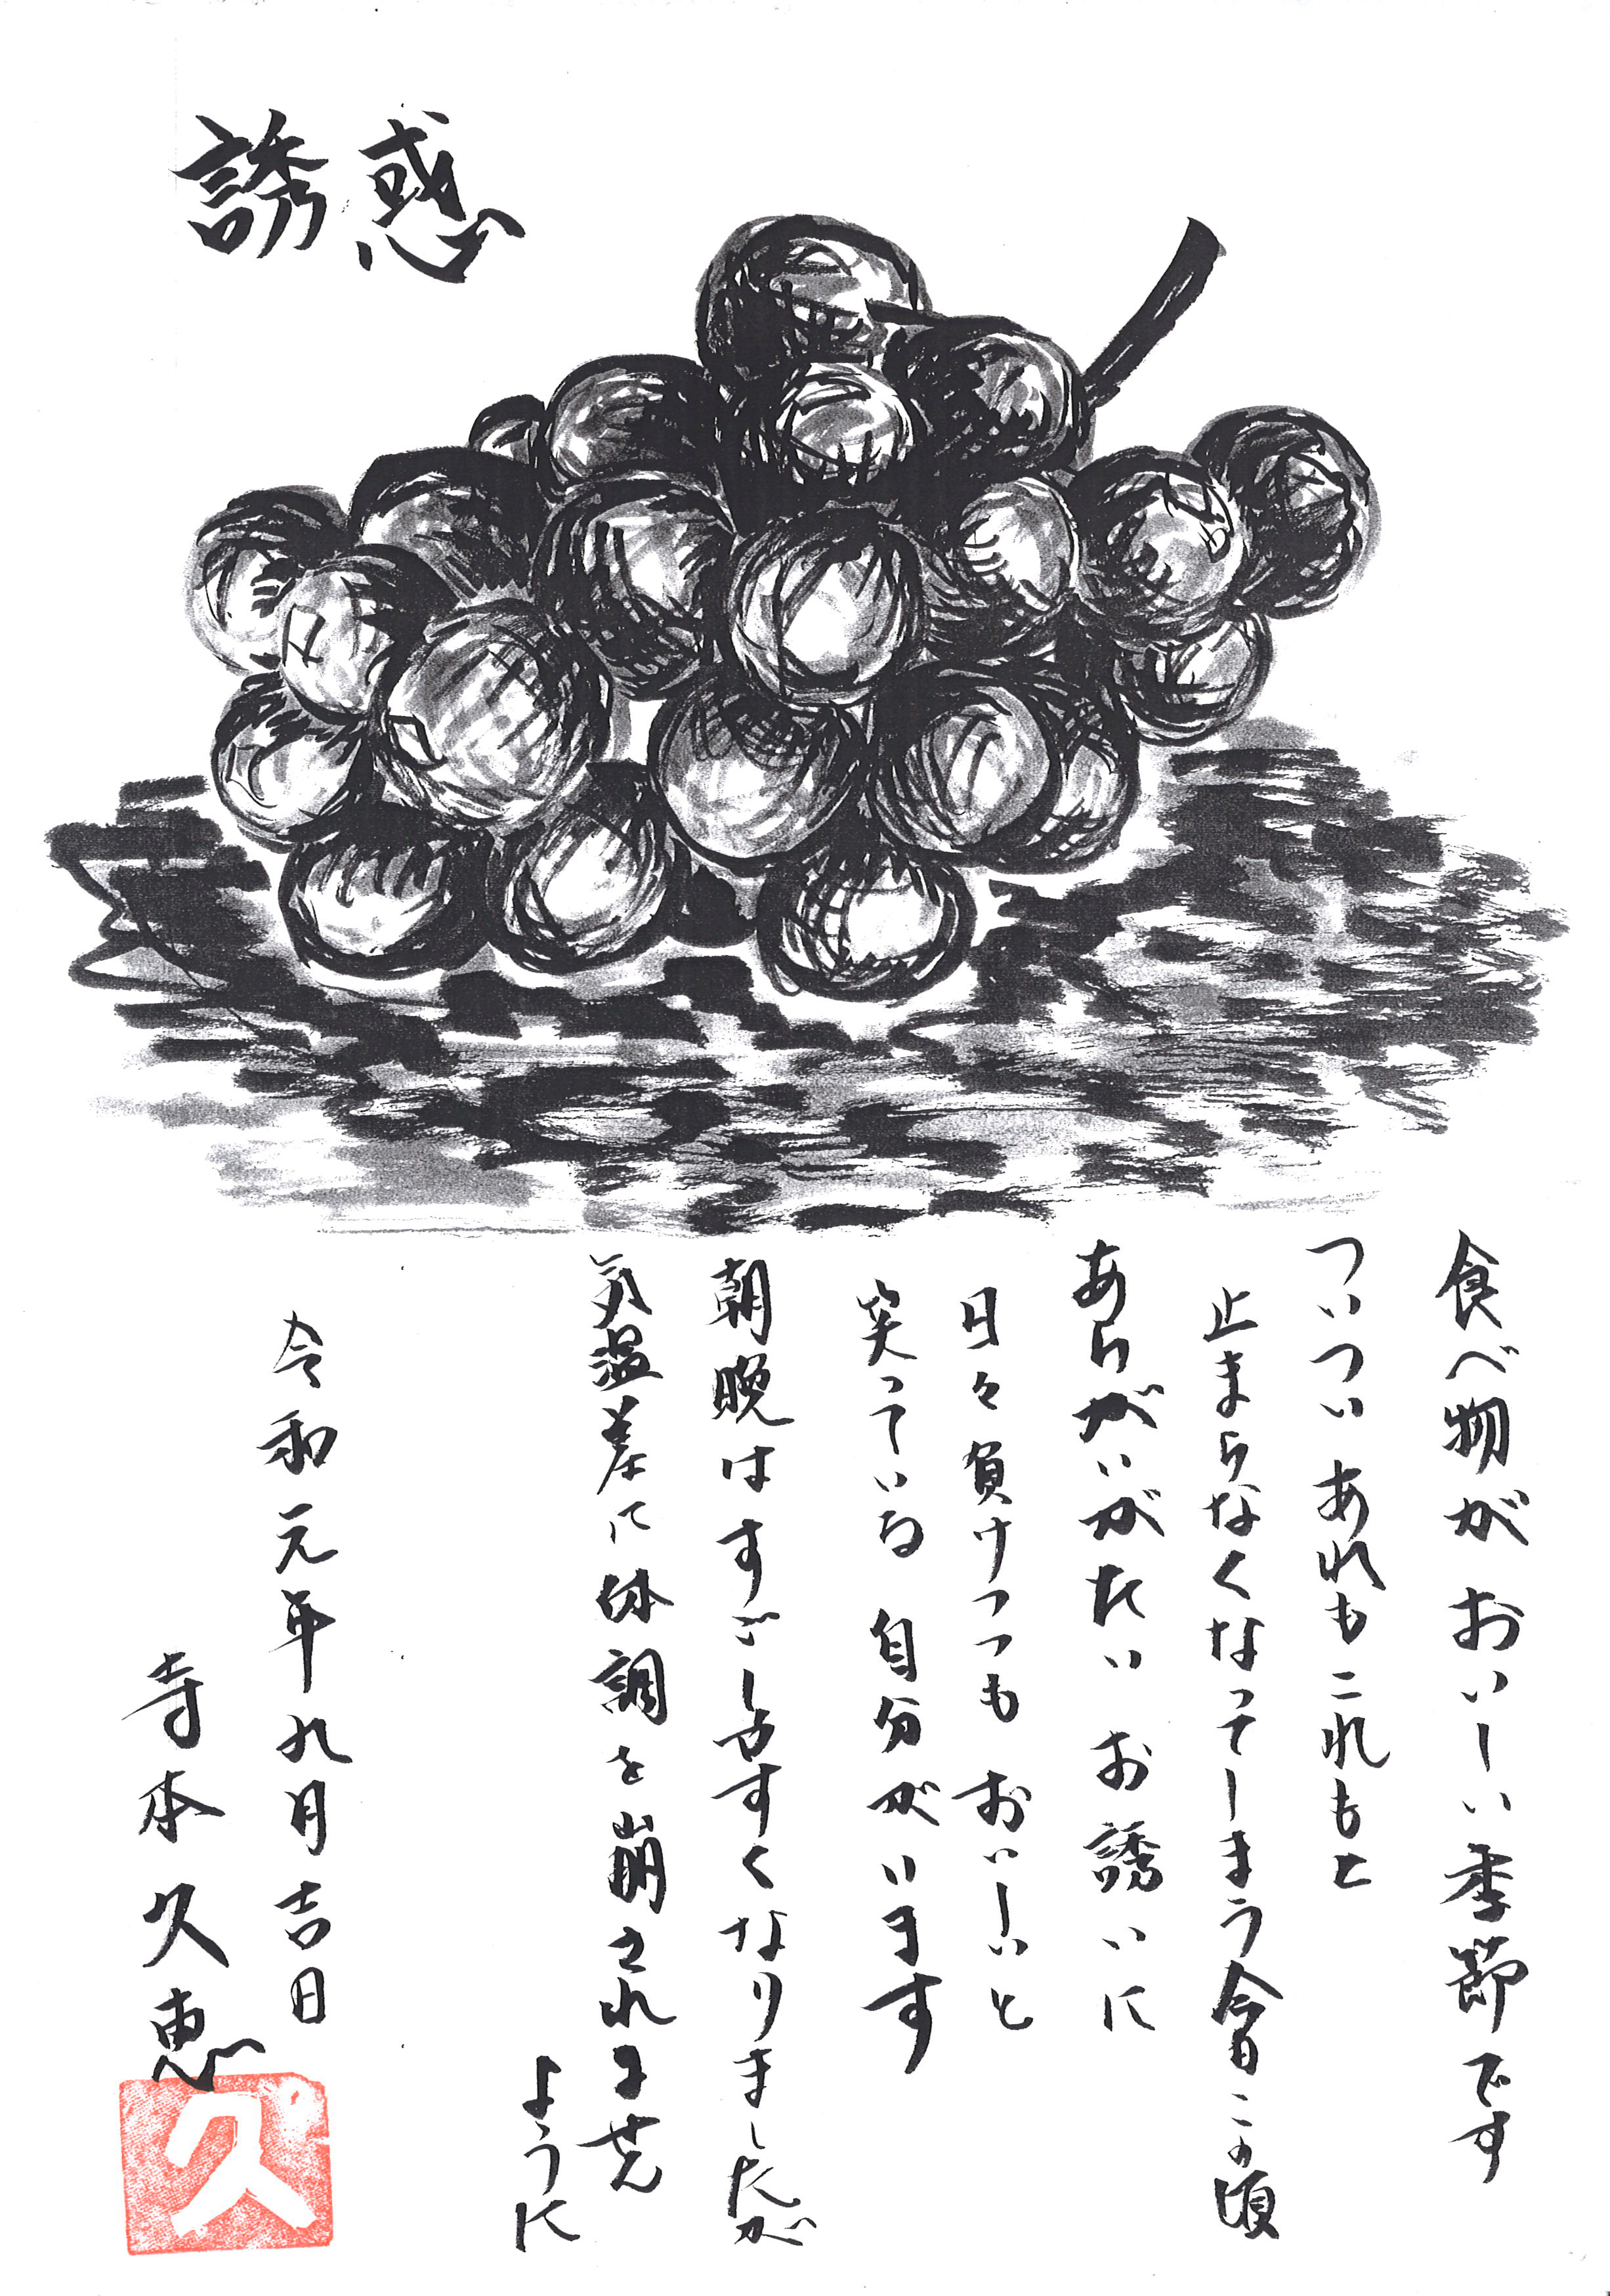 誘惑
食べ物が おいしい季節です
ついつい あれも これもと
止まらなくなってしまう今日この頃
あらがいがたい お誘いに
日々負けつつも おいしいと
笑っている 自分がいます
朝晩はすごしやすくなりましたが
気温差に体調を崩されません
ように
令和元年九月吉日
寺本久恵
久